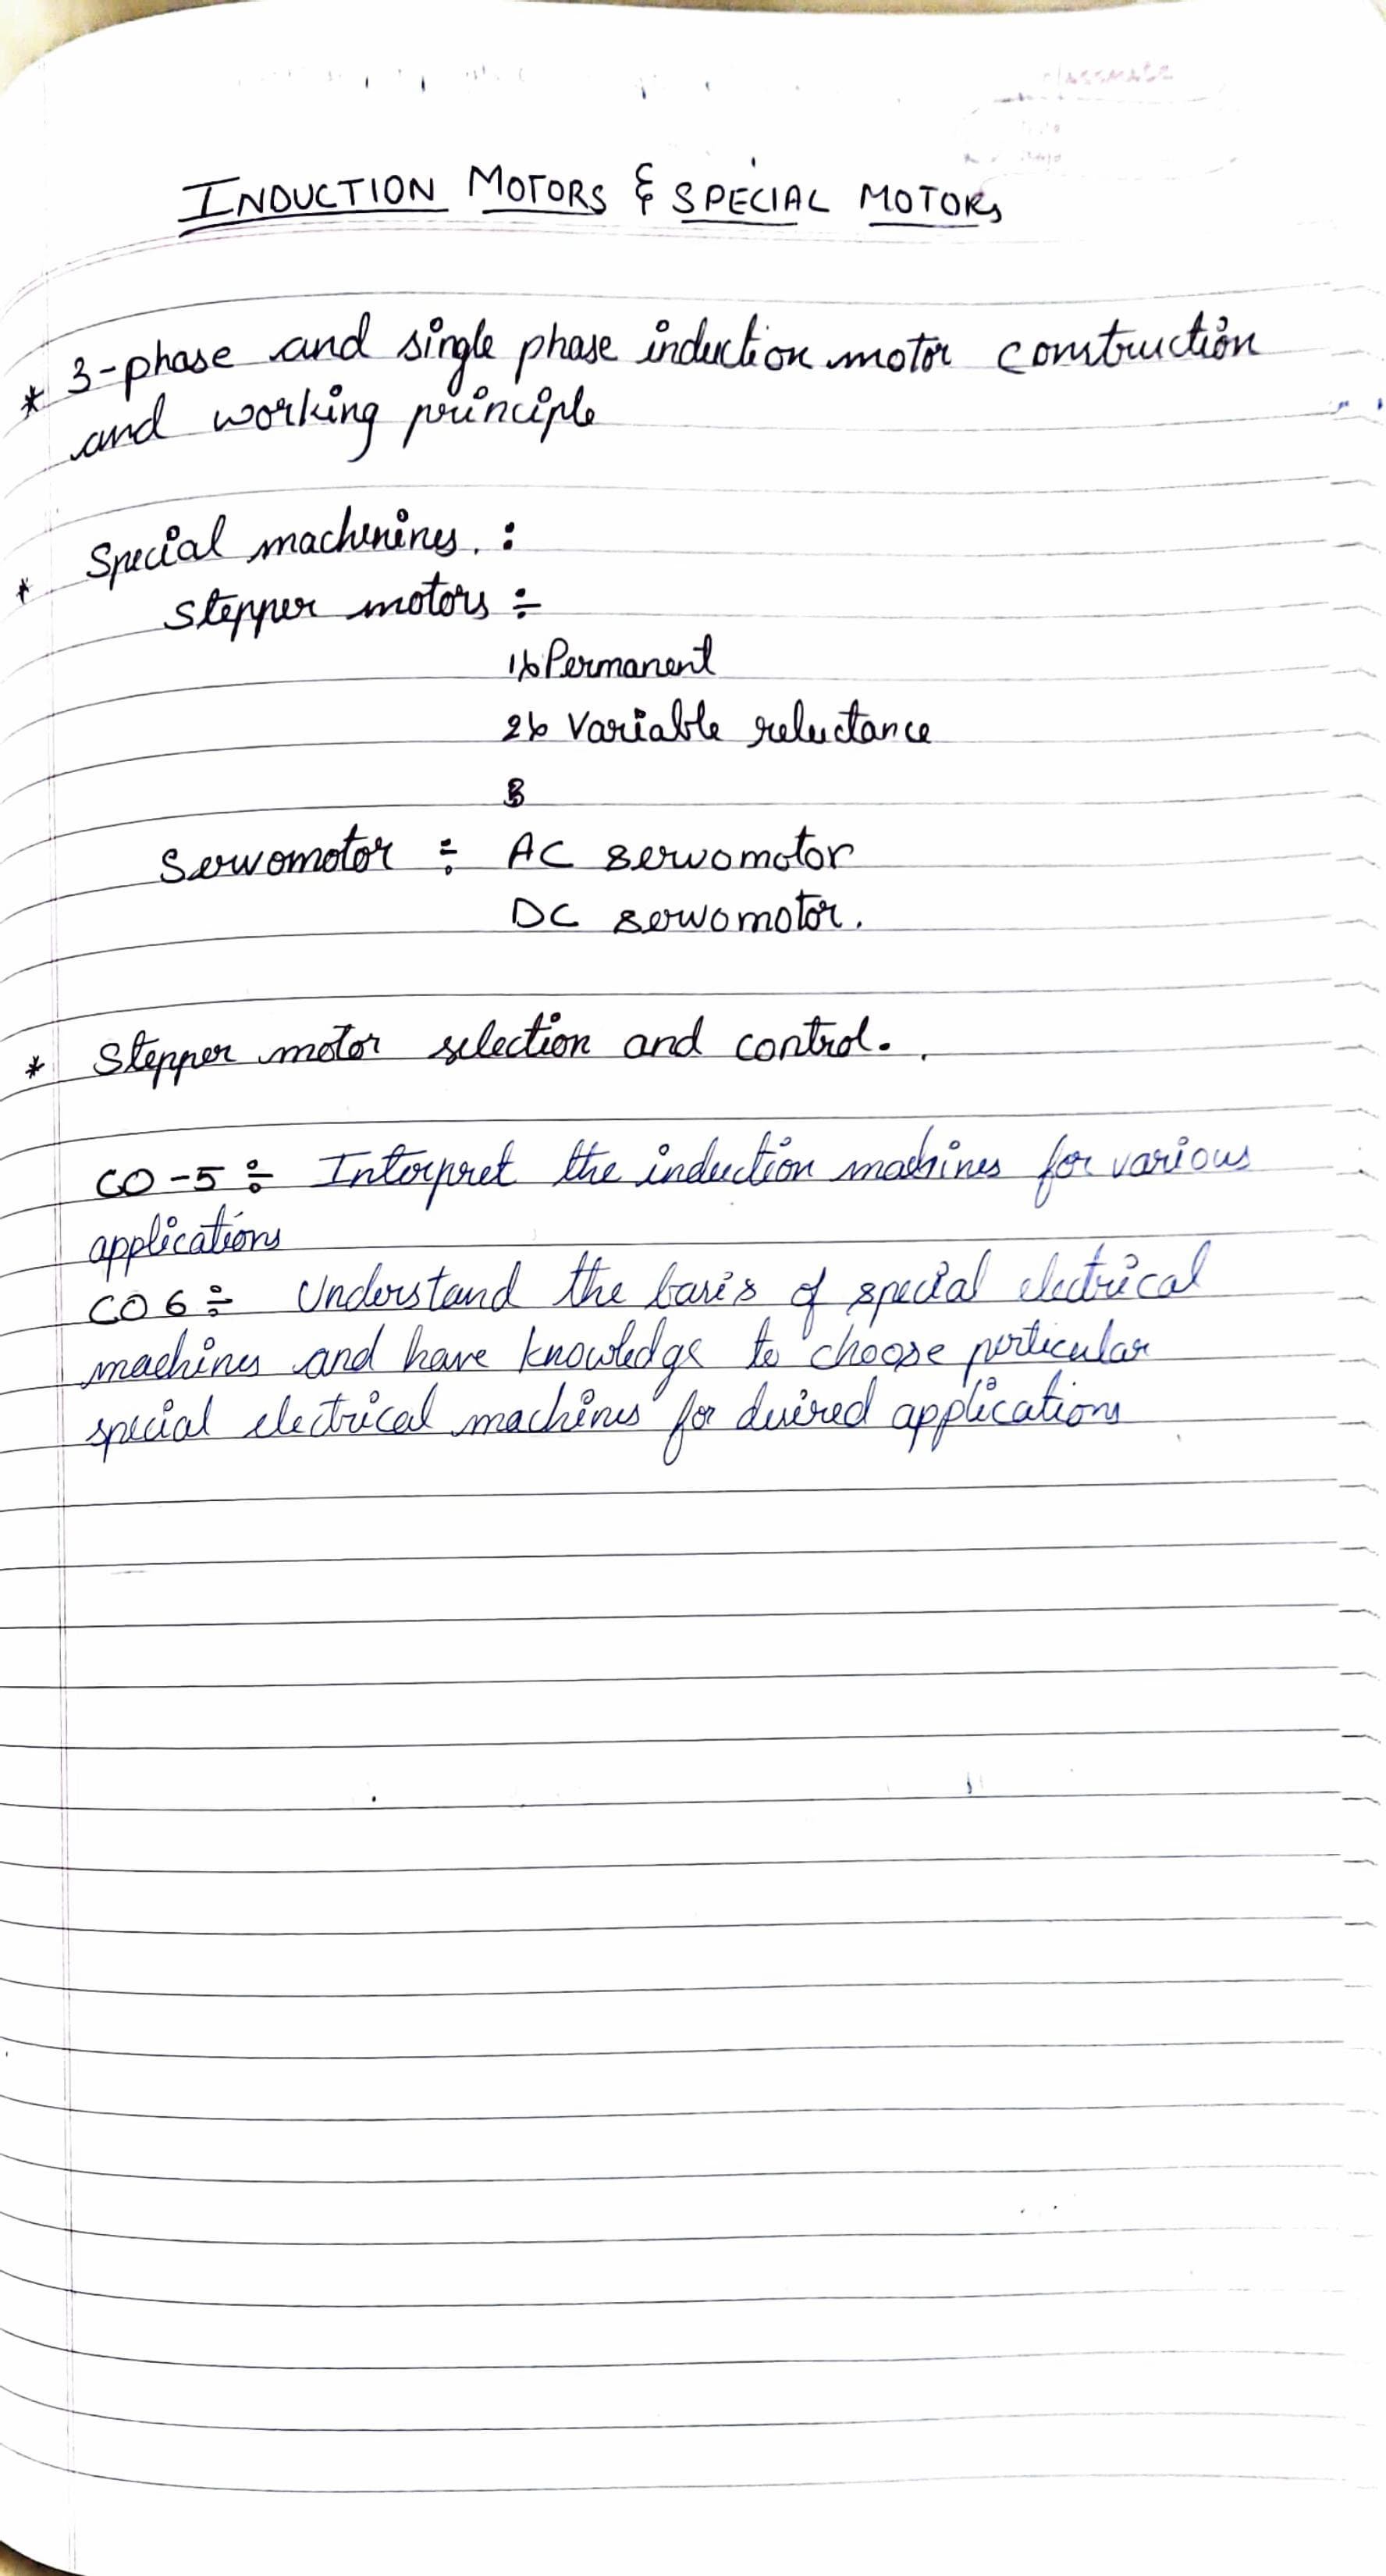 INDUCTION MOTORS & SPECIAL MOTORS
* 3-phase and single phase induction motor construction
and working principle
* Special machinines. :
Stepper motors ÷
1) Permanent
2) Variable reluctance
3
Servomotor ÷ AC servomotor
DC servomotor.
* Stepper motor selection and control.
CO-5 ÷ Interpret the induction machines for various
applications
CO6 ÷ Understand the basis of special electrical
machines and have knowledge to choose perticular
special electrical machines for desired applications